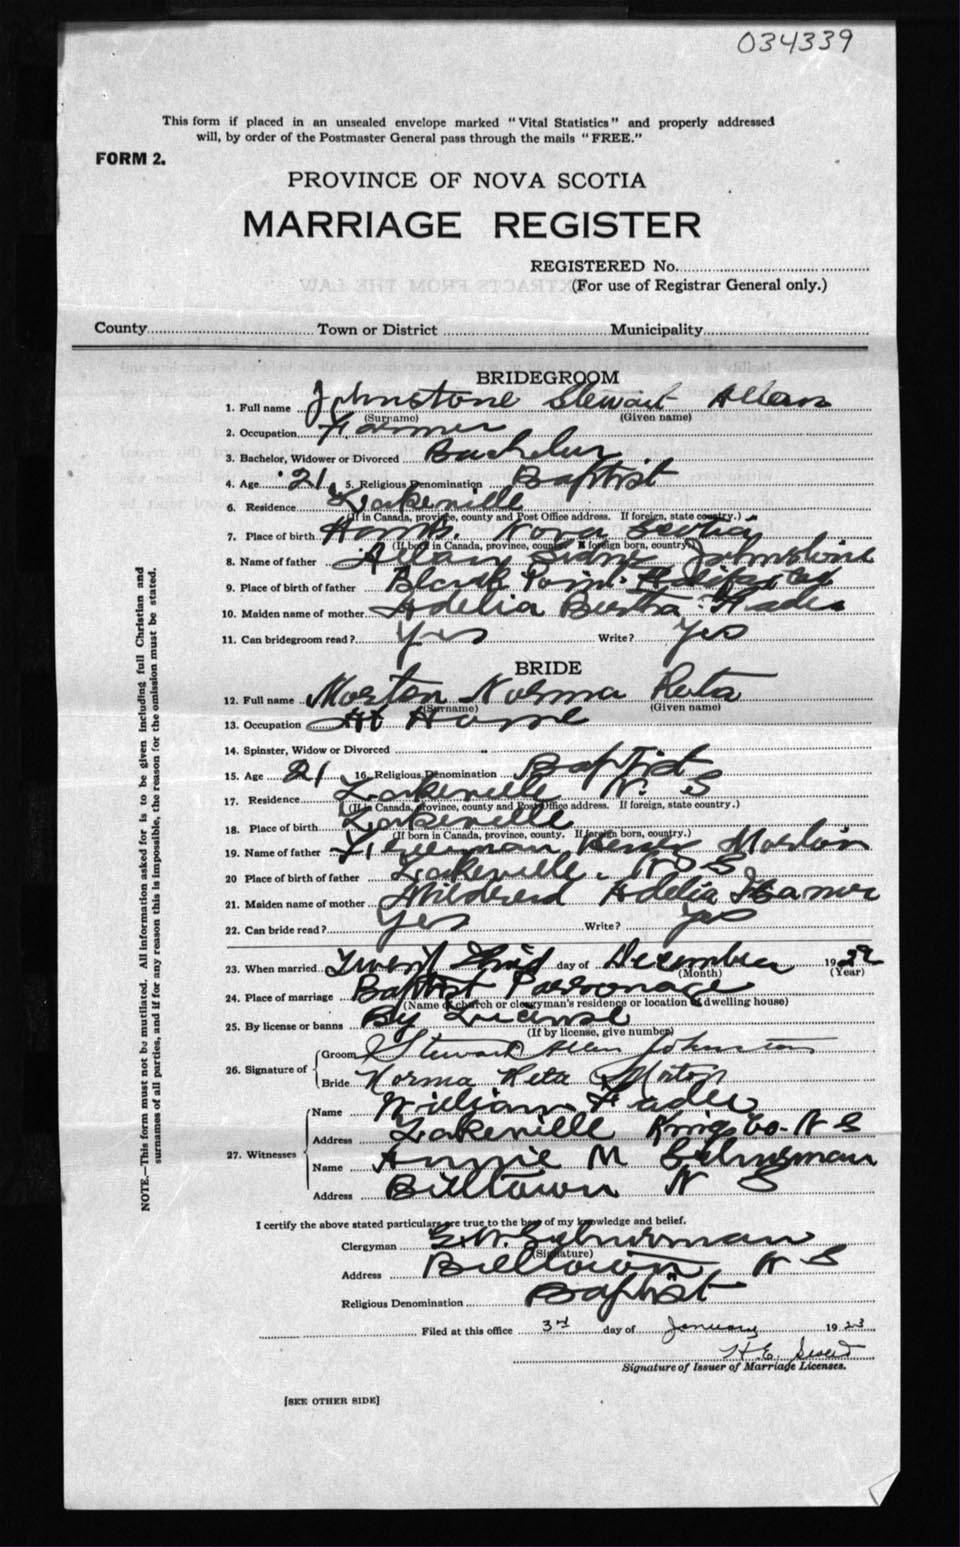 034339
This form if placed in an unsealed envelope marked "Vital Statistics" and properly addressed
will, by order of the Postmaster General pass through the mails "FREE."
FORM 2.
PROVINCE OF NOVA SCOTIA
MARRIAGE REGISTER
REGISTERED No.
(For use of Registrar General only.)
County Town or District Municipality
BRIDEGROOM
1. Full name Johnstone Stewart Allan
(Surname) (Given name)
2. Occupation Farmer
3. Bachelor, Widower or Divorced Bachelor
4. Age 21 5. Religious Denomination Baptist
6. Residence Lakeville
(If in Canada, province, county and Post Office address. If foreign, state country.)
7. Place of birth Nova Scotia
(If born in Canada, province, county. If foreign born, country.)
8. Name of father Johnstone
9. Place of birth of father Black Point Halifax Co
10. Maiden name of mother Adelia Bertha Fader
11. Can bridegroom read? Yes Write? Yes
BRIDE
12. Full name Morton Norma Reta
(Surname) (Given name)
13. Occupation At Home
14. Spinster, Widow or Divorced
15. Age 21 16. Religious Denomination Baptist
17. Residence Lakeville N. S
(If in Canada, province, county and Post Office address. If foreign, state country.)
18. Place of birth Lakeville
(If born in Canada, province, county. If foreign born, country.)
19. Name of father Morton
20 Place of birth of father Lakeville N S
21. Maiden name of mother Mildred Adelia
22. Can bride read? Yes Write? Yes
23. When married Twenty Third day of December 1922
(Month) (Year)
24. Place of marriage Baptist Parsonage
(Name of church or clergyman's residence or location of dwelling house)
25. By license or banns By License
(If by license, give number)
26. Signature of
Groom Stewart Allan Johnstone
Bride Norma Reta Morton
27. Witnesses
Name William Fader
Address Lakeville Kings Co. N S
Name Annie M Schurman
Address Billtown N S
I certify the above stated particulars are true to the best of my knowledge and belief.
Clergyman E.W. Schurman
(Signature)
Address Billtown N S
Religious Denomination Baptist
Filed at this office 3rd day of January 1923
H.E.
Signature of Issuer of Marriage Licenses.
[SEE OTHER SIDE]
NOTE.—This form must not be mutilated. All information asked for is to be given including full Christian and
surnames of all parties, and if for any reason this is impossible, the reason for the omission must be stated.